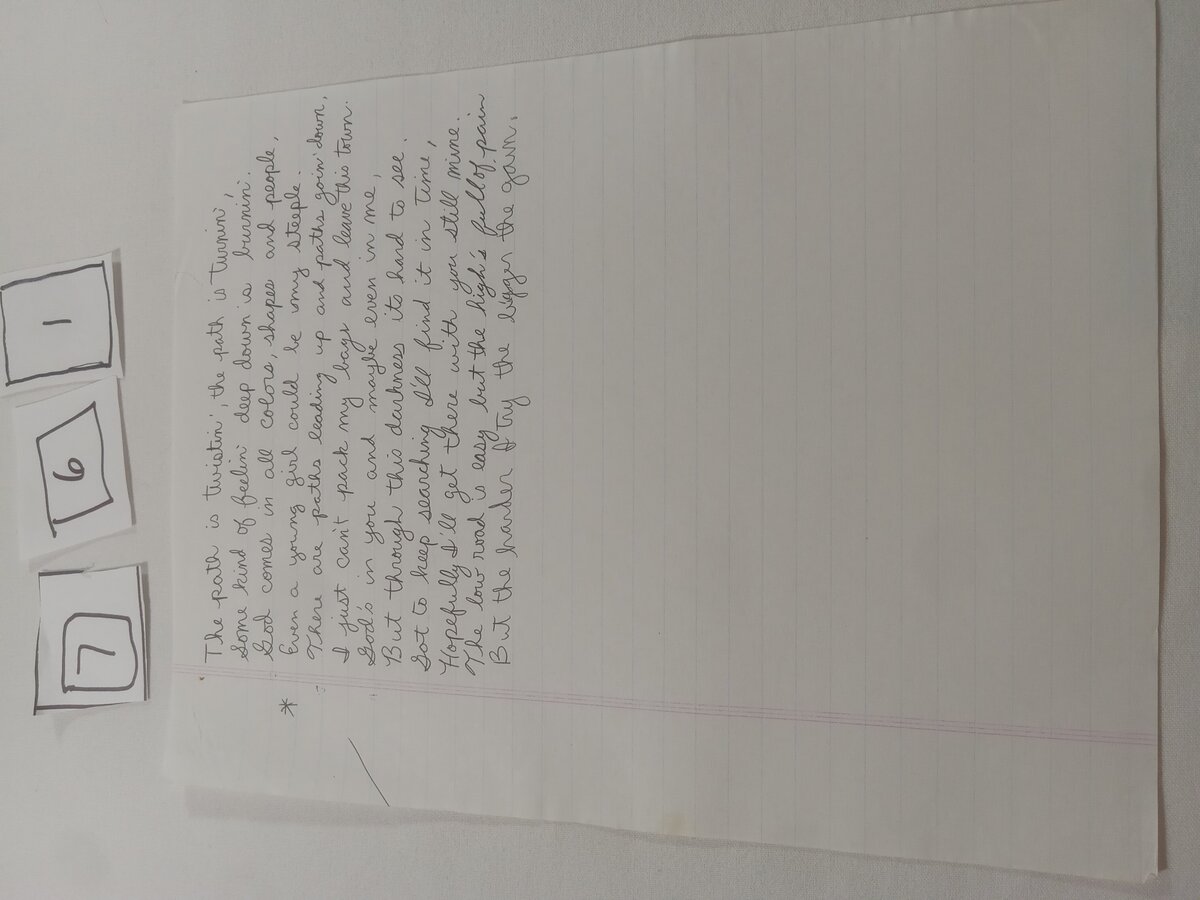 7 6 1
The path is twistin', the path is turnin',
Some kind of feelin' deep down is burnin'.
God comes in all colors, shapes and people,
* Even a young girl could be my steeple.
There are paths leading up and paths goin' down,
I just can't pack my bags and leave this town.
God's in you and maybe even in me,
But through this darkness its hard to see.
Got to keep searching I'll find it in time,
Hopefully I'll get there with you still mine.
The low road is easy but the high's full of pain
But the harder I try the bigger the gain.